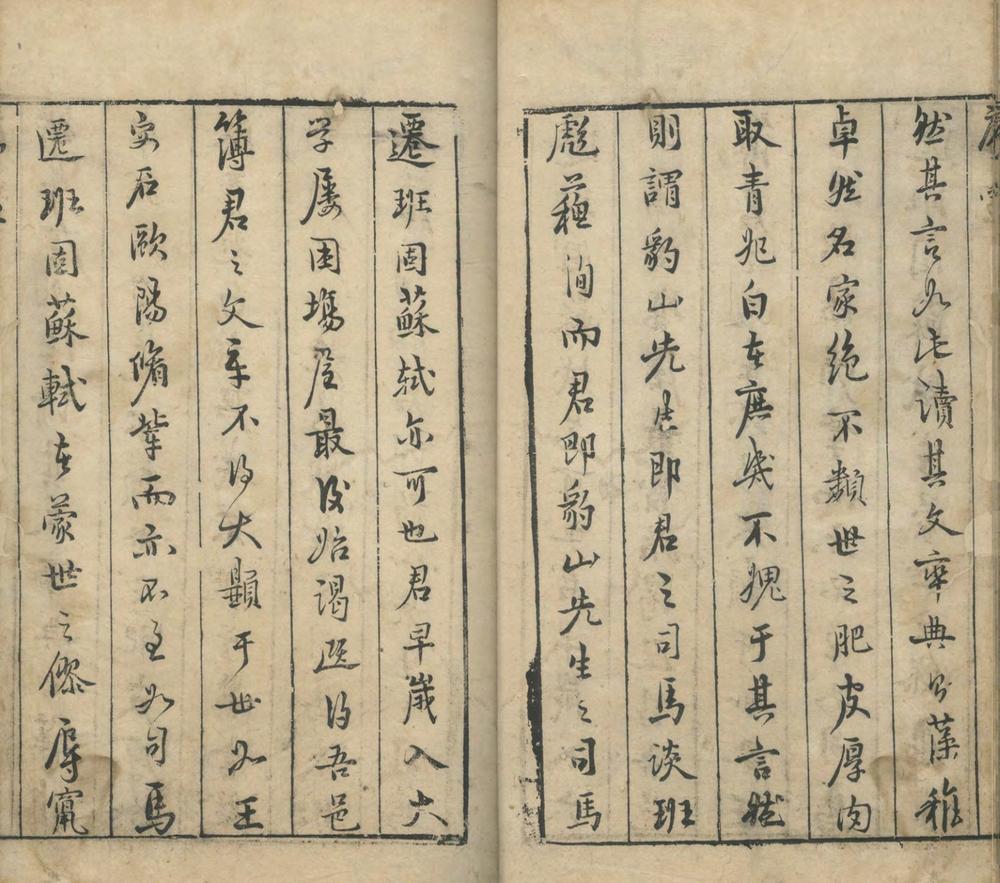 然其言如此讀其文率典則藻雅
卓然名家絕不類世之肥皮厚肉
取青妃白在庶幾不媿于其言然
則謂豹山先生即君之司馬談班
彪蘓洵而君即豹山先生之司馬
遷班固蘇軾亦可也君早歲入大
学屢困場屋最後始謁選得吾邑
簿君之文章不得大顯于世如王
安石歐陽脩輩而亦不至如司馬
遷班固蘇軾在蒙世之僇辱竄